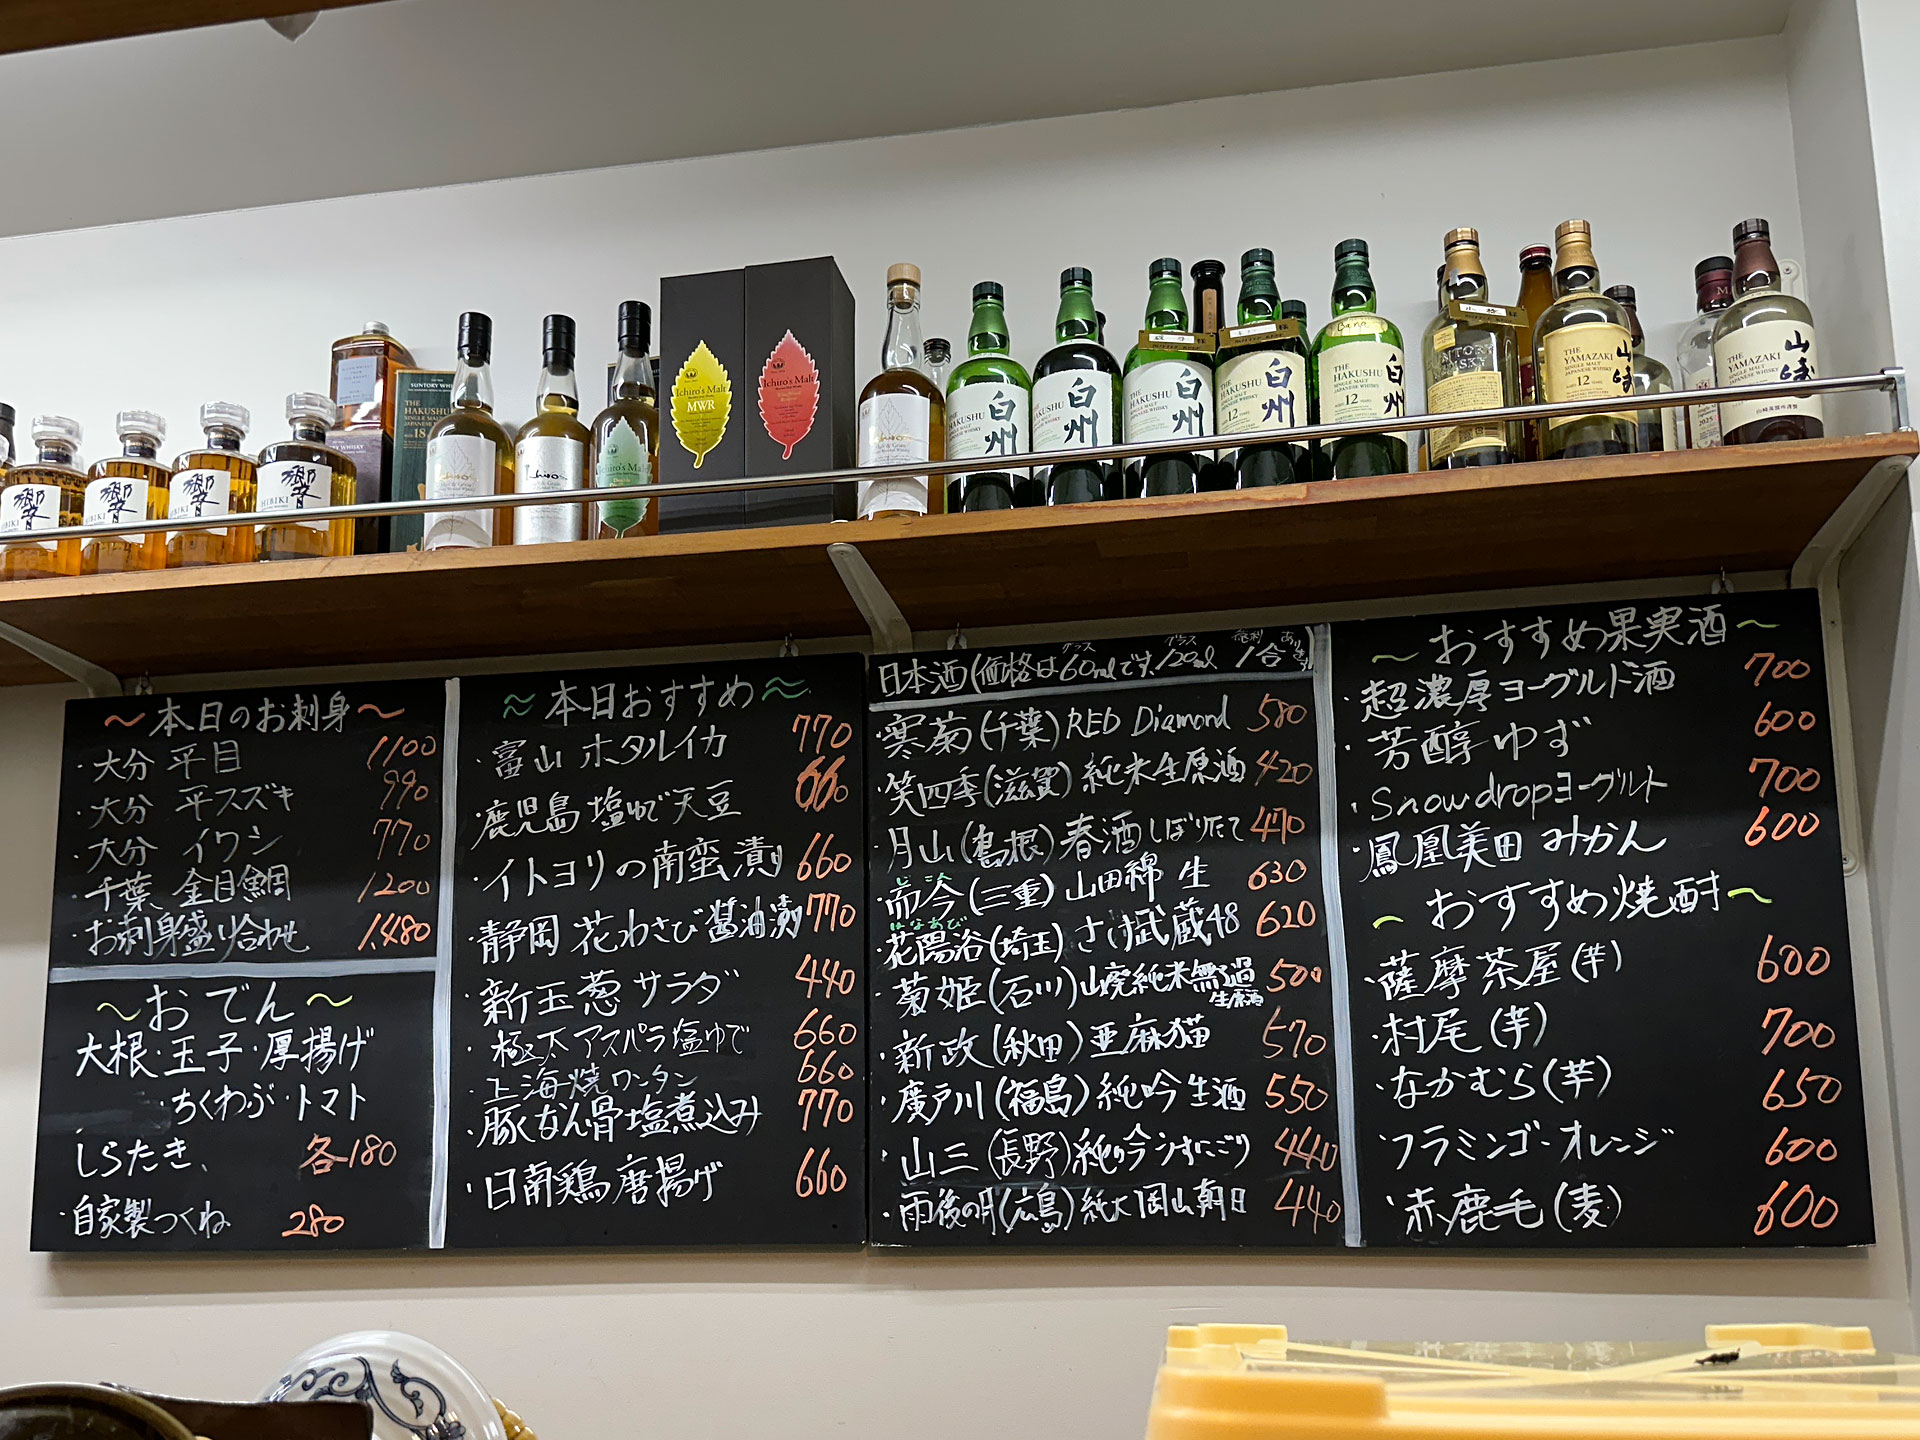 響
HIBIKI
響
HIBIKI
響
HIBIKI
響
HIBIKI
SUNTORY WHISKY
THE
HAKUSHU
SINGLE MALT
18
Ichiro's Malt
Ichiro's Malt
MWR
Ichiro's Malt
白州
HAKUSHU
白州
HAKUSHU
白州
HAKUSHU
THE
HAKUSHU
12
白州
THE
HAKUSHU
SINGLE MALT
12
白州
Bar
THE
YAMAZAKI
SINGLE MALT
12
山崎
THE
YAMAZAKI
SINGLE MALT
JAPANESE WHISKY
山崎
〜本日のお刺身〜
・大分 平目 1100
・大分 平スズキ 990
・大分 イワシ 770
・千葉、金目鯛 1200
・お刺身盛り合わせ 1,480
〜おでん〜
大根・玉子・厚揚げ
・ちくわぶ・トマト
しらたき、 各180
・自家製つくね 280
≈本日おすすめ≈
・富山 ホタルイカ 770
・鹿児島 塩ゆで天豆 660
・イトヨリの南蛮漬け 660
・静岡 花わさび醤油漬け 770
・新玉葱サラダ 440
・極太アスパラ塩ゆで 660
・上海焼ワンタン 660
・豚なん骨塩煮込み 770
・日南鶏唐揚げ 660
日本酒(価格はグラス60mlです。グラス120ml 徳利1合あります)
・寒菊(千葉)RED Diamond 580
・笑四季(滋賀)純米生原酒 420
・月山(島根)春酒しぼりたて 470
・而今(三重)山田錦 生 630
はなあび
・花陽浴(埼玉)さけ武蔵48 620
・菊姫(石川)山廃純米無濾過生原酒 500
・新政(秋田)亜麻猫 570
・廣戸川(福島)純吟生酒 550
・山三(長野)純吟うすにごり 440
・雨後の月(広島)純大岡山朝日 440
〜おすすめ果実酒〜
・超濃厚ヨーグルト酒 700
・芳醇ゆず 600
・Snowdropヨーグルト 700
・鳳凰美田 みかん 600
〜おすすめ焼酎〜
・薩摩茶屋(芋) 600
・村尾(芋) 700
・なかむら(芋) 650
・フラミンゴオレンジ 600
・赤鹿毛(麦) 600